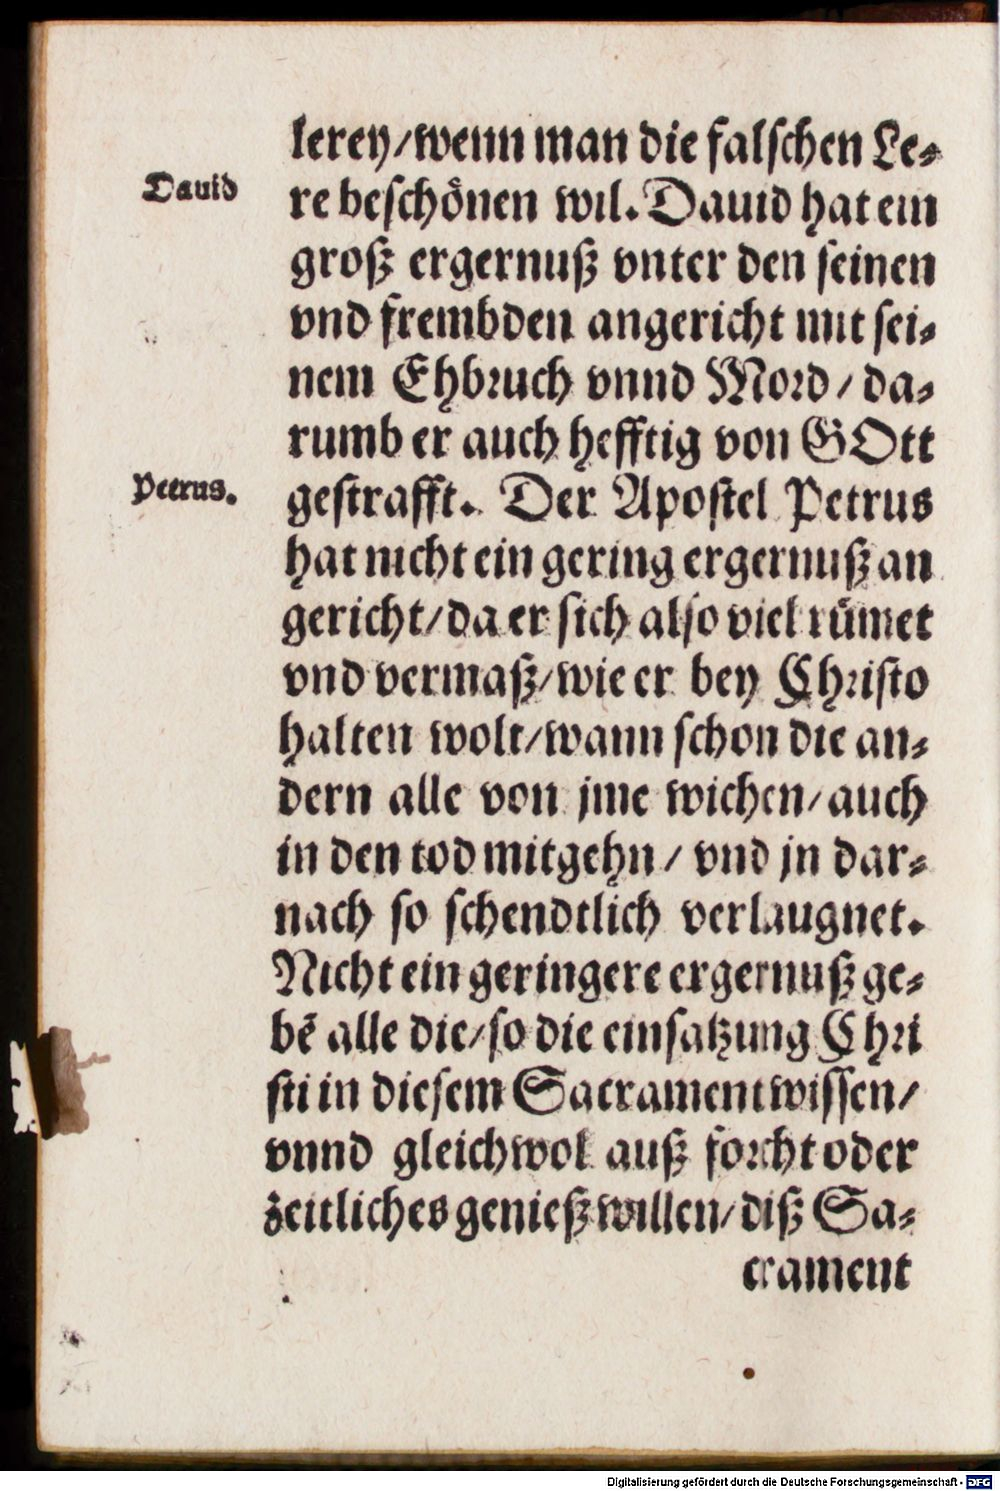 lerey/wenn man die falschen Le⸗
Dauid
re beschönen wil. Dauid hat ein
groß ergernuß vnter den seinen
vnd frembden angericht mit sei⸗
nem Ehbruch vnnd Mord / da⸗
rumb er auch hefftig von GOtt
Petrus.
gestrafft. Der Apostel Petrus
hat nicht ein gering ergernuß an
gericht/da er sich also viel rümet
vnd vermaß/wie er bey Christo
halten wolt/wann schon die an⸗
dern alle von jme wichen/auch
in den tod mitgehn / vnd jn dar⸗
nach so schendtlich verlaugnet.
Nicht ein geringere ergernuß ge⸗
bẽ alle die/so die einsatzung Chri
sti in diesem Sacrament wissen/
vnnd gleichwol auß forcht oder
zeitliches genieß willen/diß Sa⸗
crament
Digitalisierung gefördert durch die Deutsche Forschungsgemeinschaft - DFG